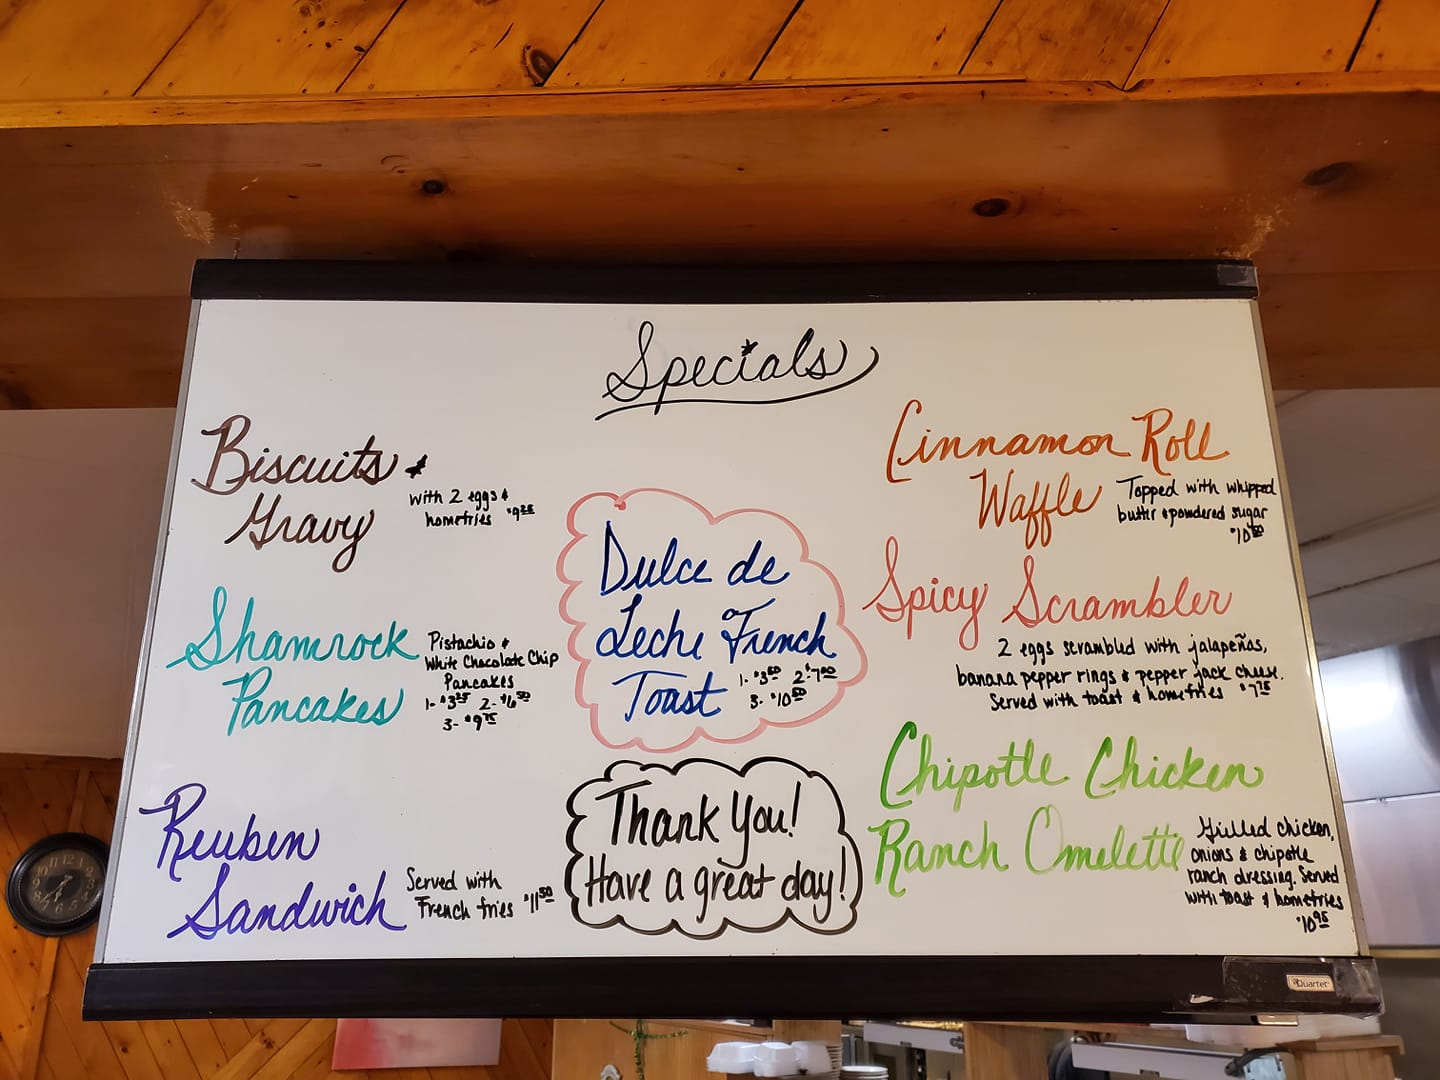 Specials
Biscuits &
Gravy
with 2 eggs &
homefries $9.25
Shamrock
Pancakes
Pistachio &
White Chocolate Chip
Pancakes
1- $3.25 2- $6.50
3- $9.75
Reuben
Sandwich
Served with
French fries $11.50
Dulce de
Leche French
Toast
1- $3.50 2- $7.00
3- $10.50
Thank You!
Have a great day!
Cinnamon Roll
Waffle
Topped with whipped
butter & powdered sugar
$10.50
Spicy Scrambler
2 eggs scrambled with jalapeños,
banana pepper rings & pepper jack cheese.
Served with toast & homefries $7.75
Chipotle Chicken
Ranch Omelette
Grilled chicken,
onions & chipotle
ranch dressing. Served
with toast & homefries
$10.95
Quartet